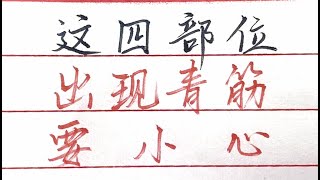 这四部位
出现青筋
要小心